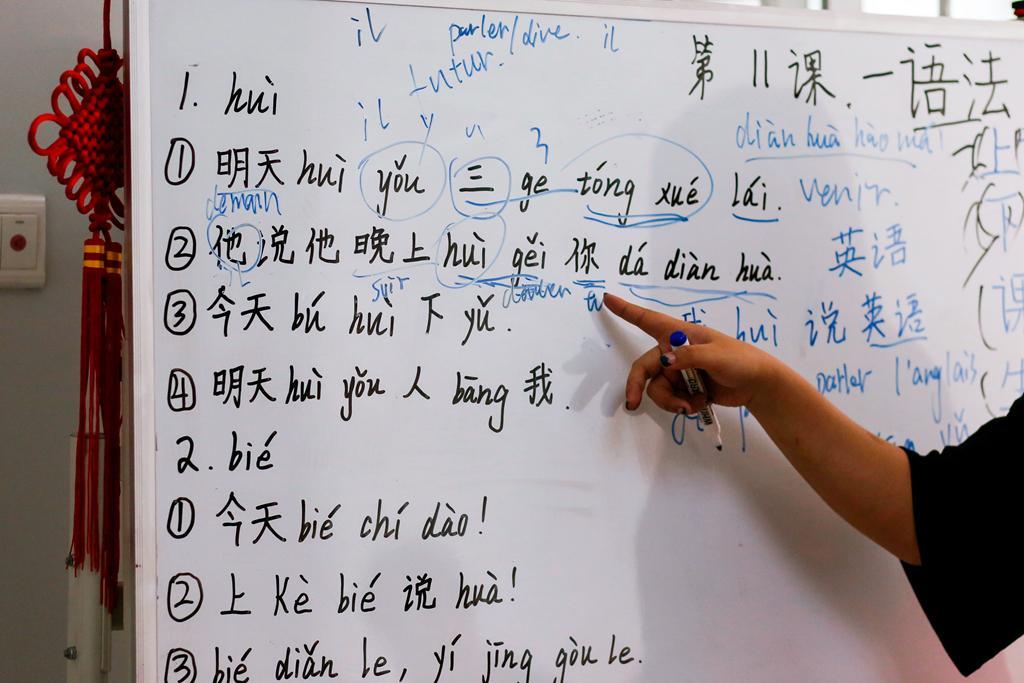 il parler/dire. il
futur.
第 11 课. 一语法
1. huì
il y
diàn huà hào mǎ
① 明天 huì yǒu 三 ge tóng xué lái. venir.
demain
② 他说他 晚上 huì gěi 你 dá diàn huà. 英语
soir tu
③ 今天 bú huì 下 yǔ. huì 说 英语
④ 明天 huì yǒu 人 bāng 我. parler l'anglais
2. bié
① 今天 bié chí dào!
② 上 Kè bié 说 huà!
③ bié diǎn le, yí jīng gòu le.